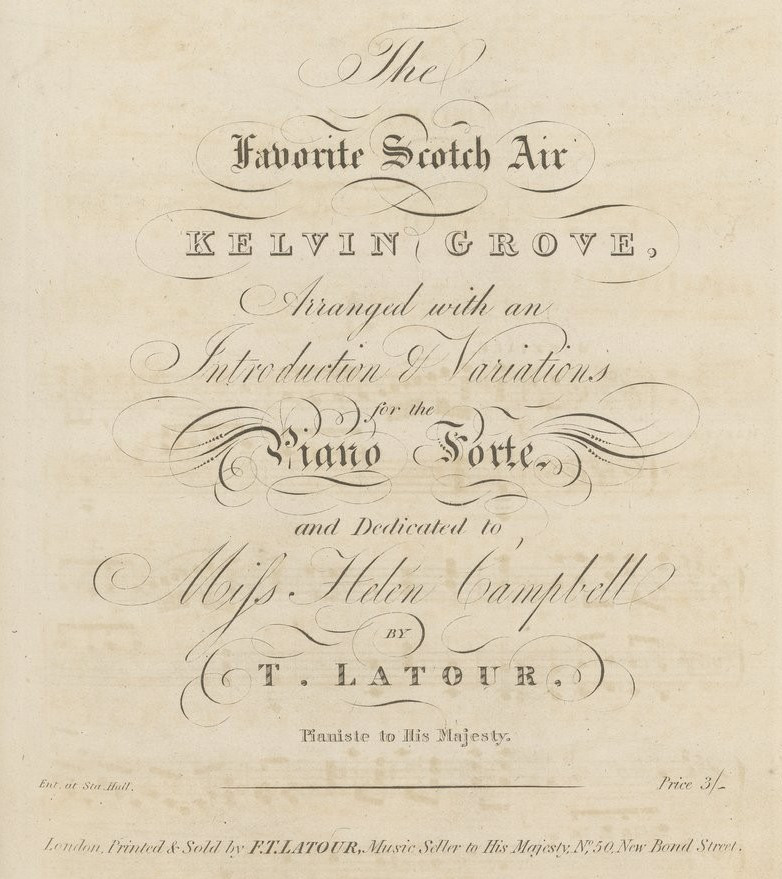 The
Favorite Scotch Air
KELVIN GROVE,
Arranged with an
Introduction & Variations
for the
Piano Forte,
and Dedicated to
Miſs Helen Campbell
BY
T. LATOUR,
Pianiste to His Majesty.
Ent. at Sta. Hall.
Price 3/-
London, Printed & Sold by F.T. LATOUR, Music Seller to His Majesty, No. 50, New Bond Street.